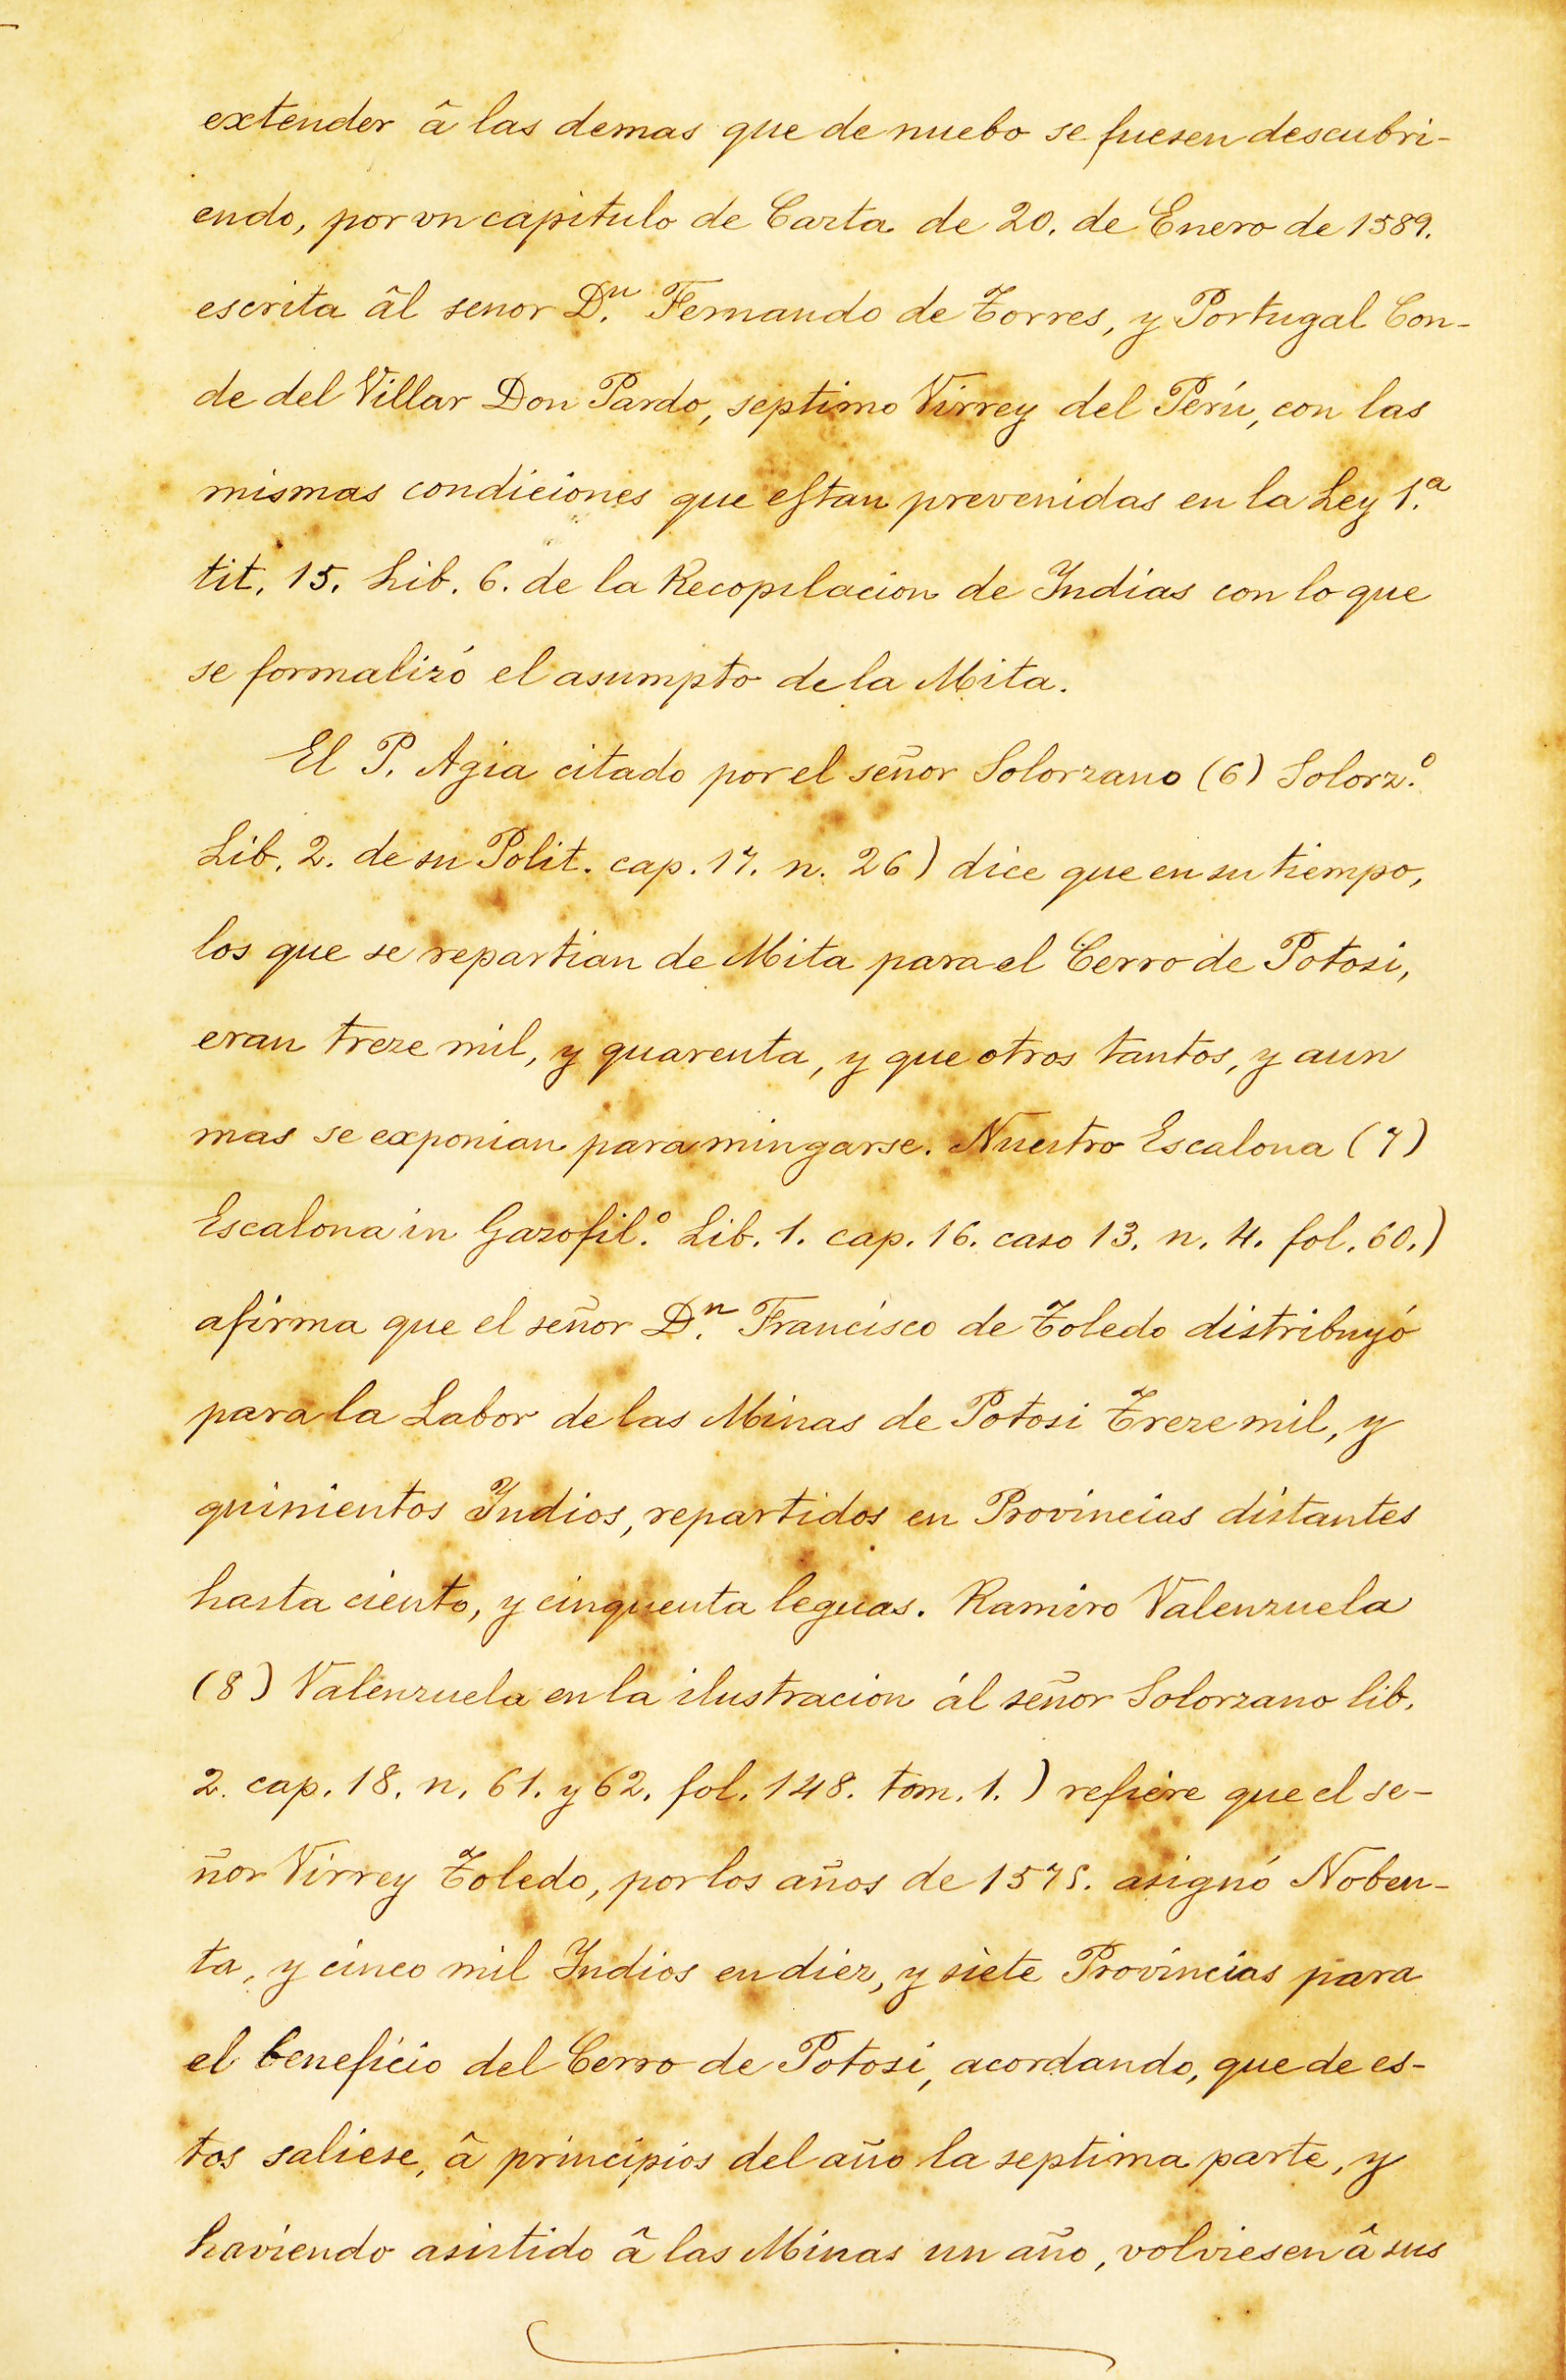 extender â las demas que de nuebo se fuesen descubri-
endo, por vn capitulo de Carta de 20. de Enero de 1589.
escrita âl senor D.n Fernando de Torres, y Portugal Con-
de del Villar Don Pardo, septimo Virrey del Perú, con las
mismas condiciones que estan prevenidas en la Ley 1.a
tit. 15. Lib. 6. de la Recopilacion de Yndias con lo que
se formalizó el asumpto de la Mita.
El P. Agia citado por el señor Solorzano (6) Solorz.o
Lib. 2. de su Polit. cap. 17. n. 26) dice que en su tiempo,
los que se repartian de Mita para el Cerro de Potosi,
eran treze mil, y quarenta, y que otros tantos, y aun
mas se exponian para mingarse. Nuestro Escalona (7)
Escalona in Gazofil.o Lib. 1. cap. 16. caso 13. n. 4. fol. 60.)
afirma que el señor D.n Francisco de Toledo distribuyó
para la Labor de las Minas de Potosi Treze mil, y
quinientos Yndios, repartidos en Provincias distantes
hasta ciento, y cinquenta leguas. Ramiro Valenzuela
(8) Valenzuela en la ilustracion ál señor Solorzano lib.
2. cap. 18. n. 61. y 62. fol. 148. tom. 1.) refiere que el se-
ñor Virrey Toledo, por los años de 1575. asignó Noben-
ta, y cinco mil Yndios en diez, y siete Provincias para
el beneficio del Cerro de Potosi, acordando, que de es-
tos saliese, â principios del año la septima parte, y
haviendo asistido â las Minas un año, volviesen â sus